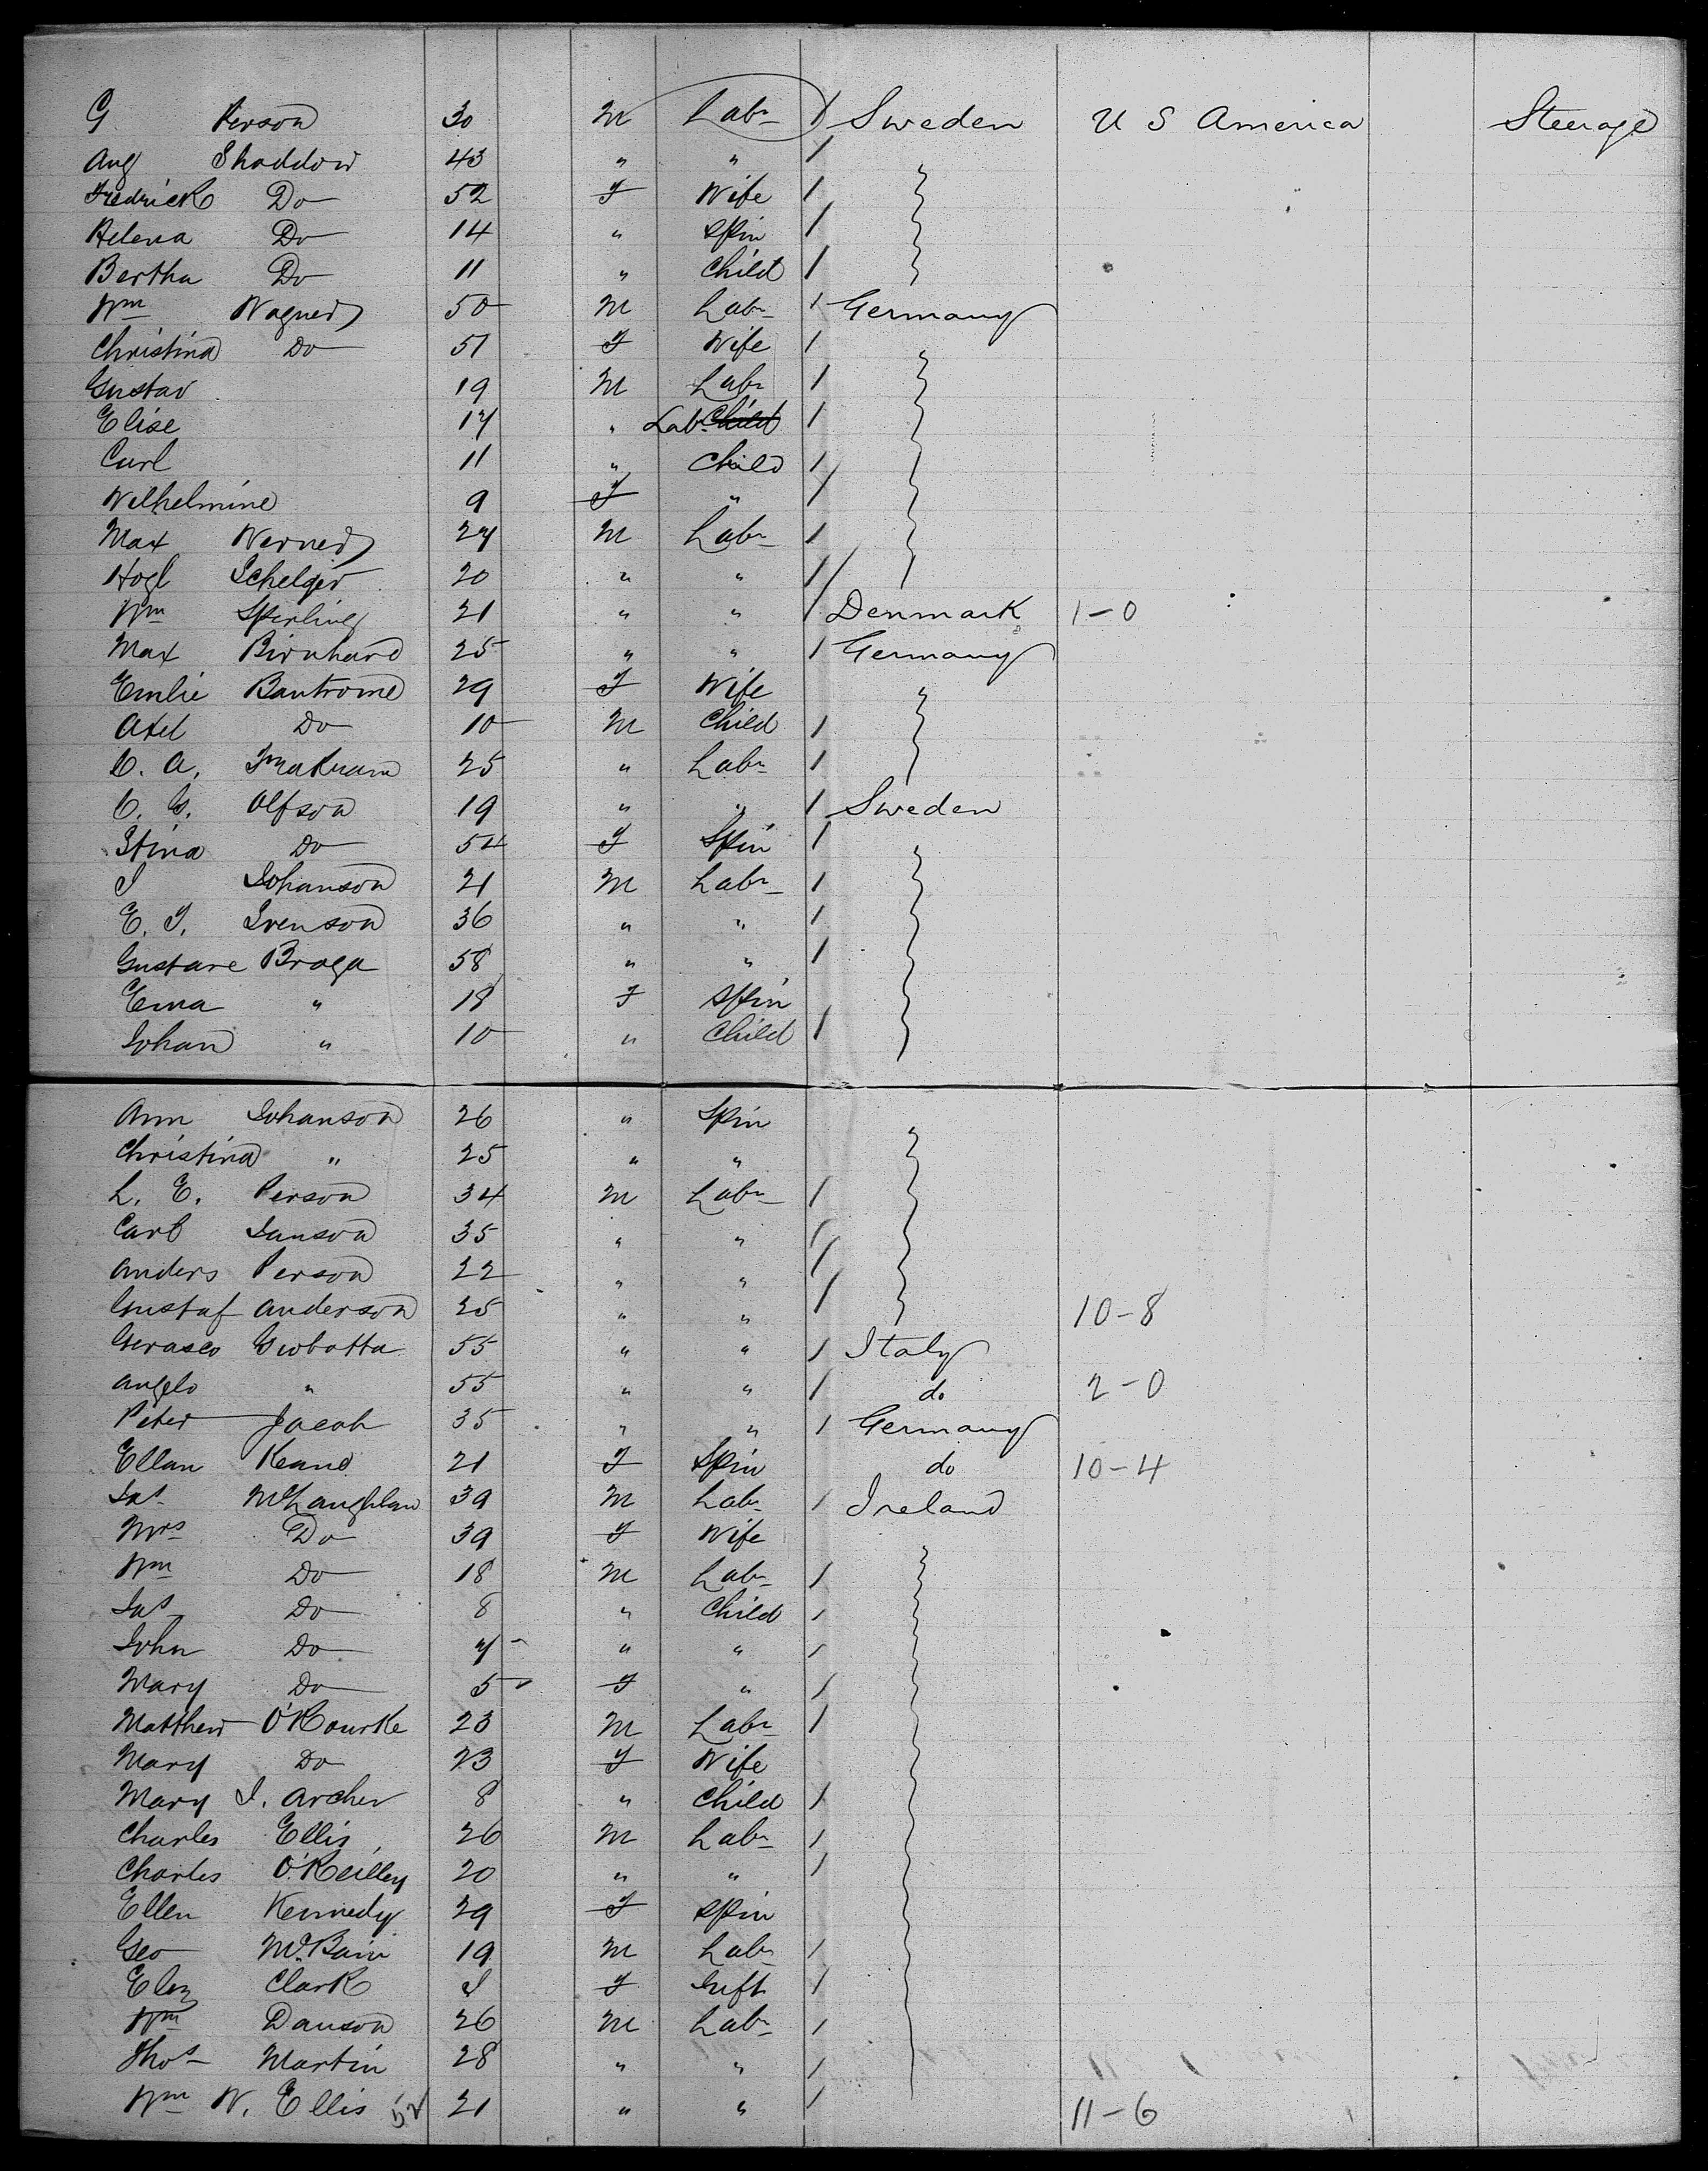 G Person 30 M Labr / Sweden U S America Steerage
Aug Shaddow 43 " " /
Fredrick Do 52 F Wife /
Helena Do 14 " Spin /
Bertha Do 11 " Child /
Wm Wagner 50 M Labr / Germany
Christina Do 51 F Wife /
Gustav 19 M Labr /
Elise 17 " Lab Child /
Carl 11 " Child /
Wilhelmine 9 F " /
Max Werner 27 M Labr /
Hogl Schelger 20 " " /
Wm Sperling 21 " " / Denmark 1-0
Max Birnhard 25 " " / Germany
Emlie Bantrome 29 F Wife
Axel Do 10 M Child /
C. A. 25 " Labr /
C. G. Olfson 19 " " / Sweden
Stina Do 54 F Spin /
J Johanson 21 M Labr /
E. J. Svenson 36 " " /
Gustave Broga 58 " " /
Erna " 18 F Spin
Johan " 10 " Child /
Ann Johanson 26 " Spin
Christina " 25 " "
L. E. Person 34 M Labr /
Carl Janson 35 " " /
Anders Person 22 " " /
Gustaf Anderson 25 " " / 10-8
Gerasco Giobatta 55 " " / Italy
Angelo " 55 " " / do 2-0
Peter Jacob 35 " " / Germany
Ellan Keane 21 F Spin do 10-4
Jas McLaughlan 39 M Labr / Ireland
Mrs Do 39 F Wife
Wm Do 18 M Labr /
Jas Do 8 " Child /
John Do 7 " " /
Mary Do 5 F " /
Matthew O'Rourke 23 M Labr /
Mary Do 23 F Wife
Mary J. Archer 8 " Child /
Charles Ellis 26 M Labr /
Charles O'Reilley 20 " " /
Ellen Kennedy 29 F Spin
Geo McBain 19 M Labr /
Eliz Clark F Inft /
Wm Danson 26 M Labr /
Thos Martin 28 " " /
Wm W. Ellis 52 21 " " / 11-6